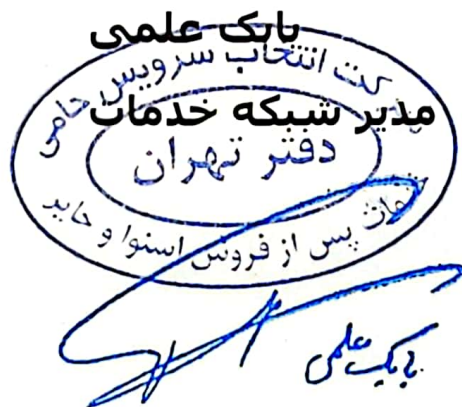 بابک علمی
مدیر شبکه خدمات
شرکت انتخاب سرویس حامی
دفتر تهران
خدمات پس از فروش اسنوا و حایر
بابک علمی